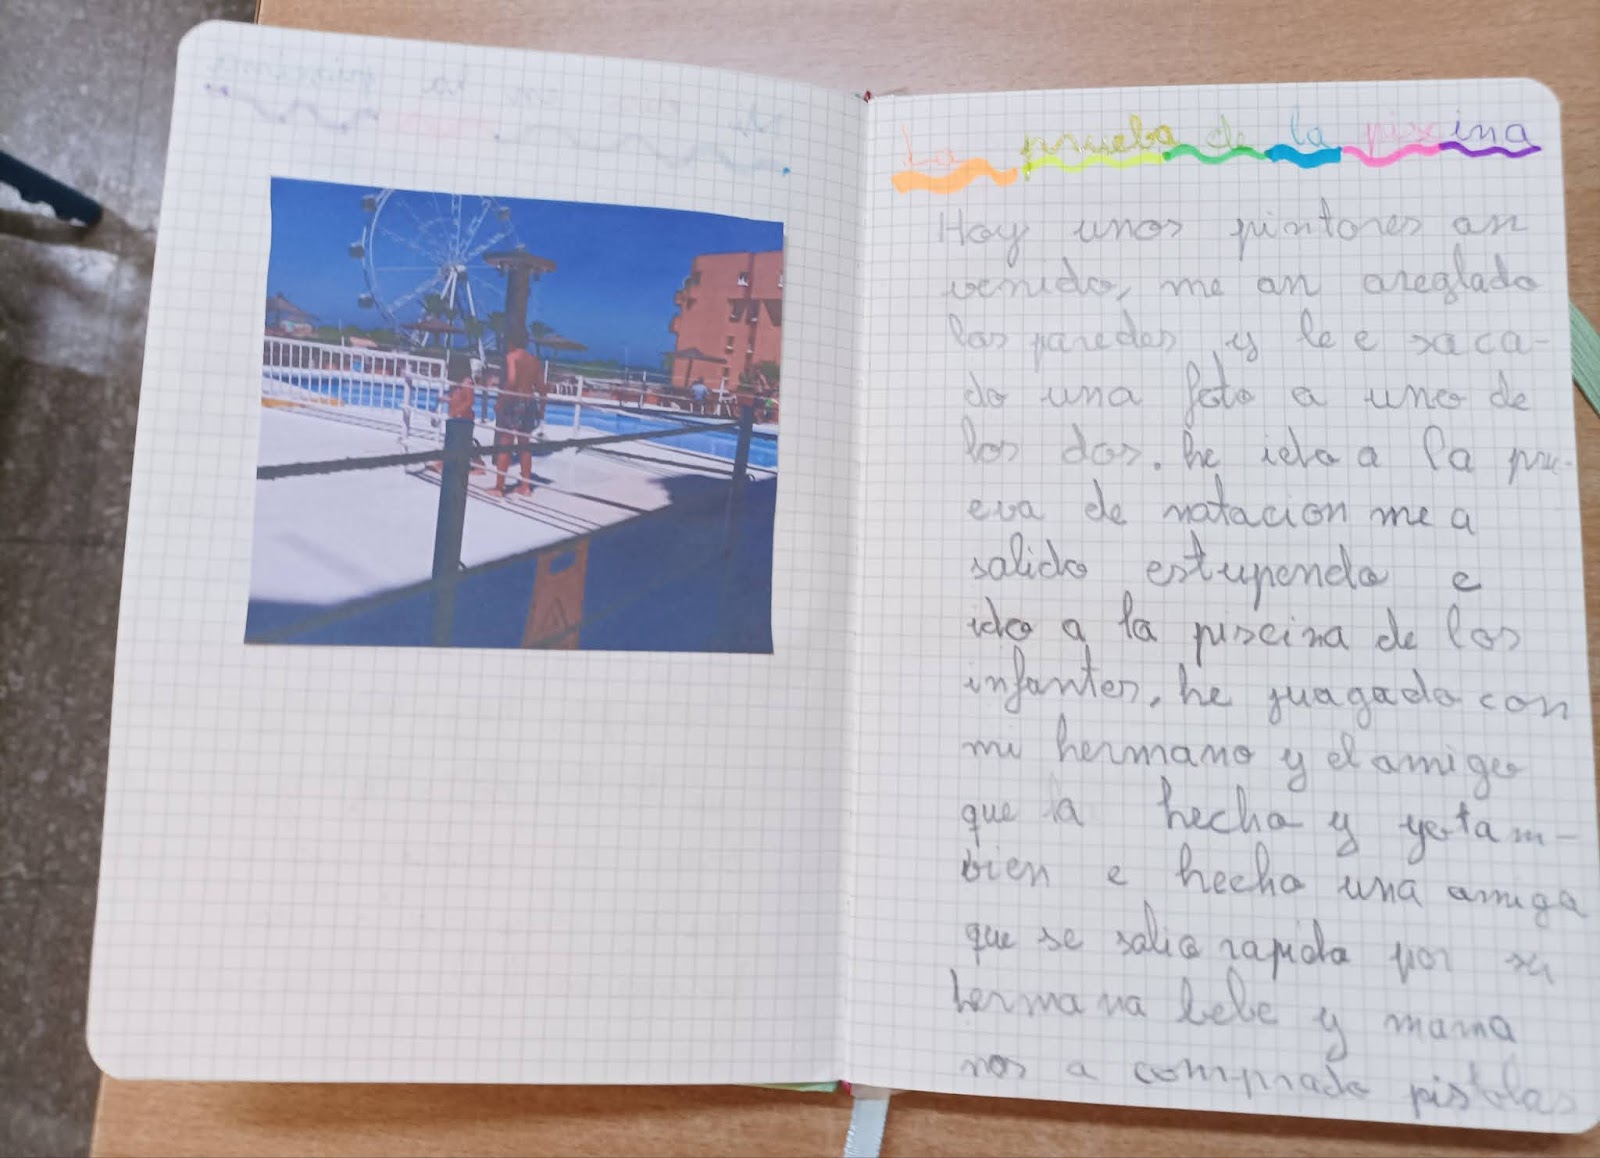 La prueba de la piscina
Hoy unos pintores an
venido, me an areglado
las paredes y le e saca-
do una foto a uno de
los dos. he ido a la pru-
eva de natacion me a
salido estupendo e
ido a la piscina de los
infantes, he juagado con
mi hermano y el amigo
que a hecho y yo tam-
bien e hecho una amiga
que se salio rapido por su
hermana bebe y mama
nos a comprado pistolas